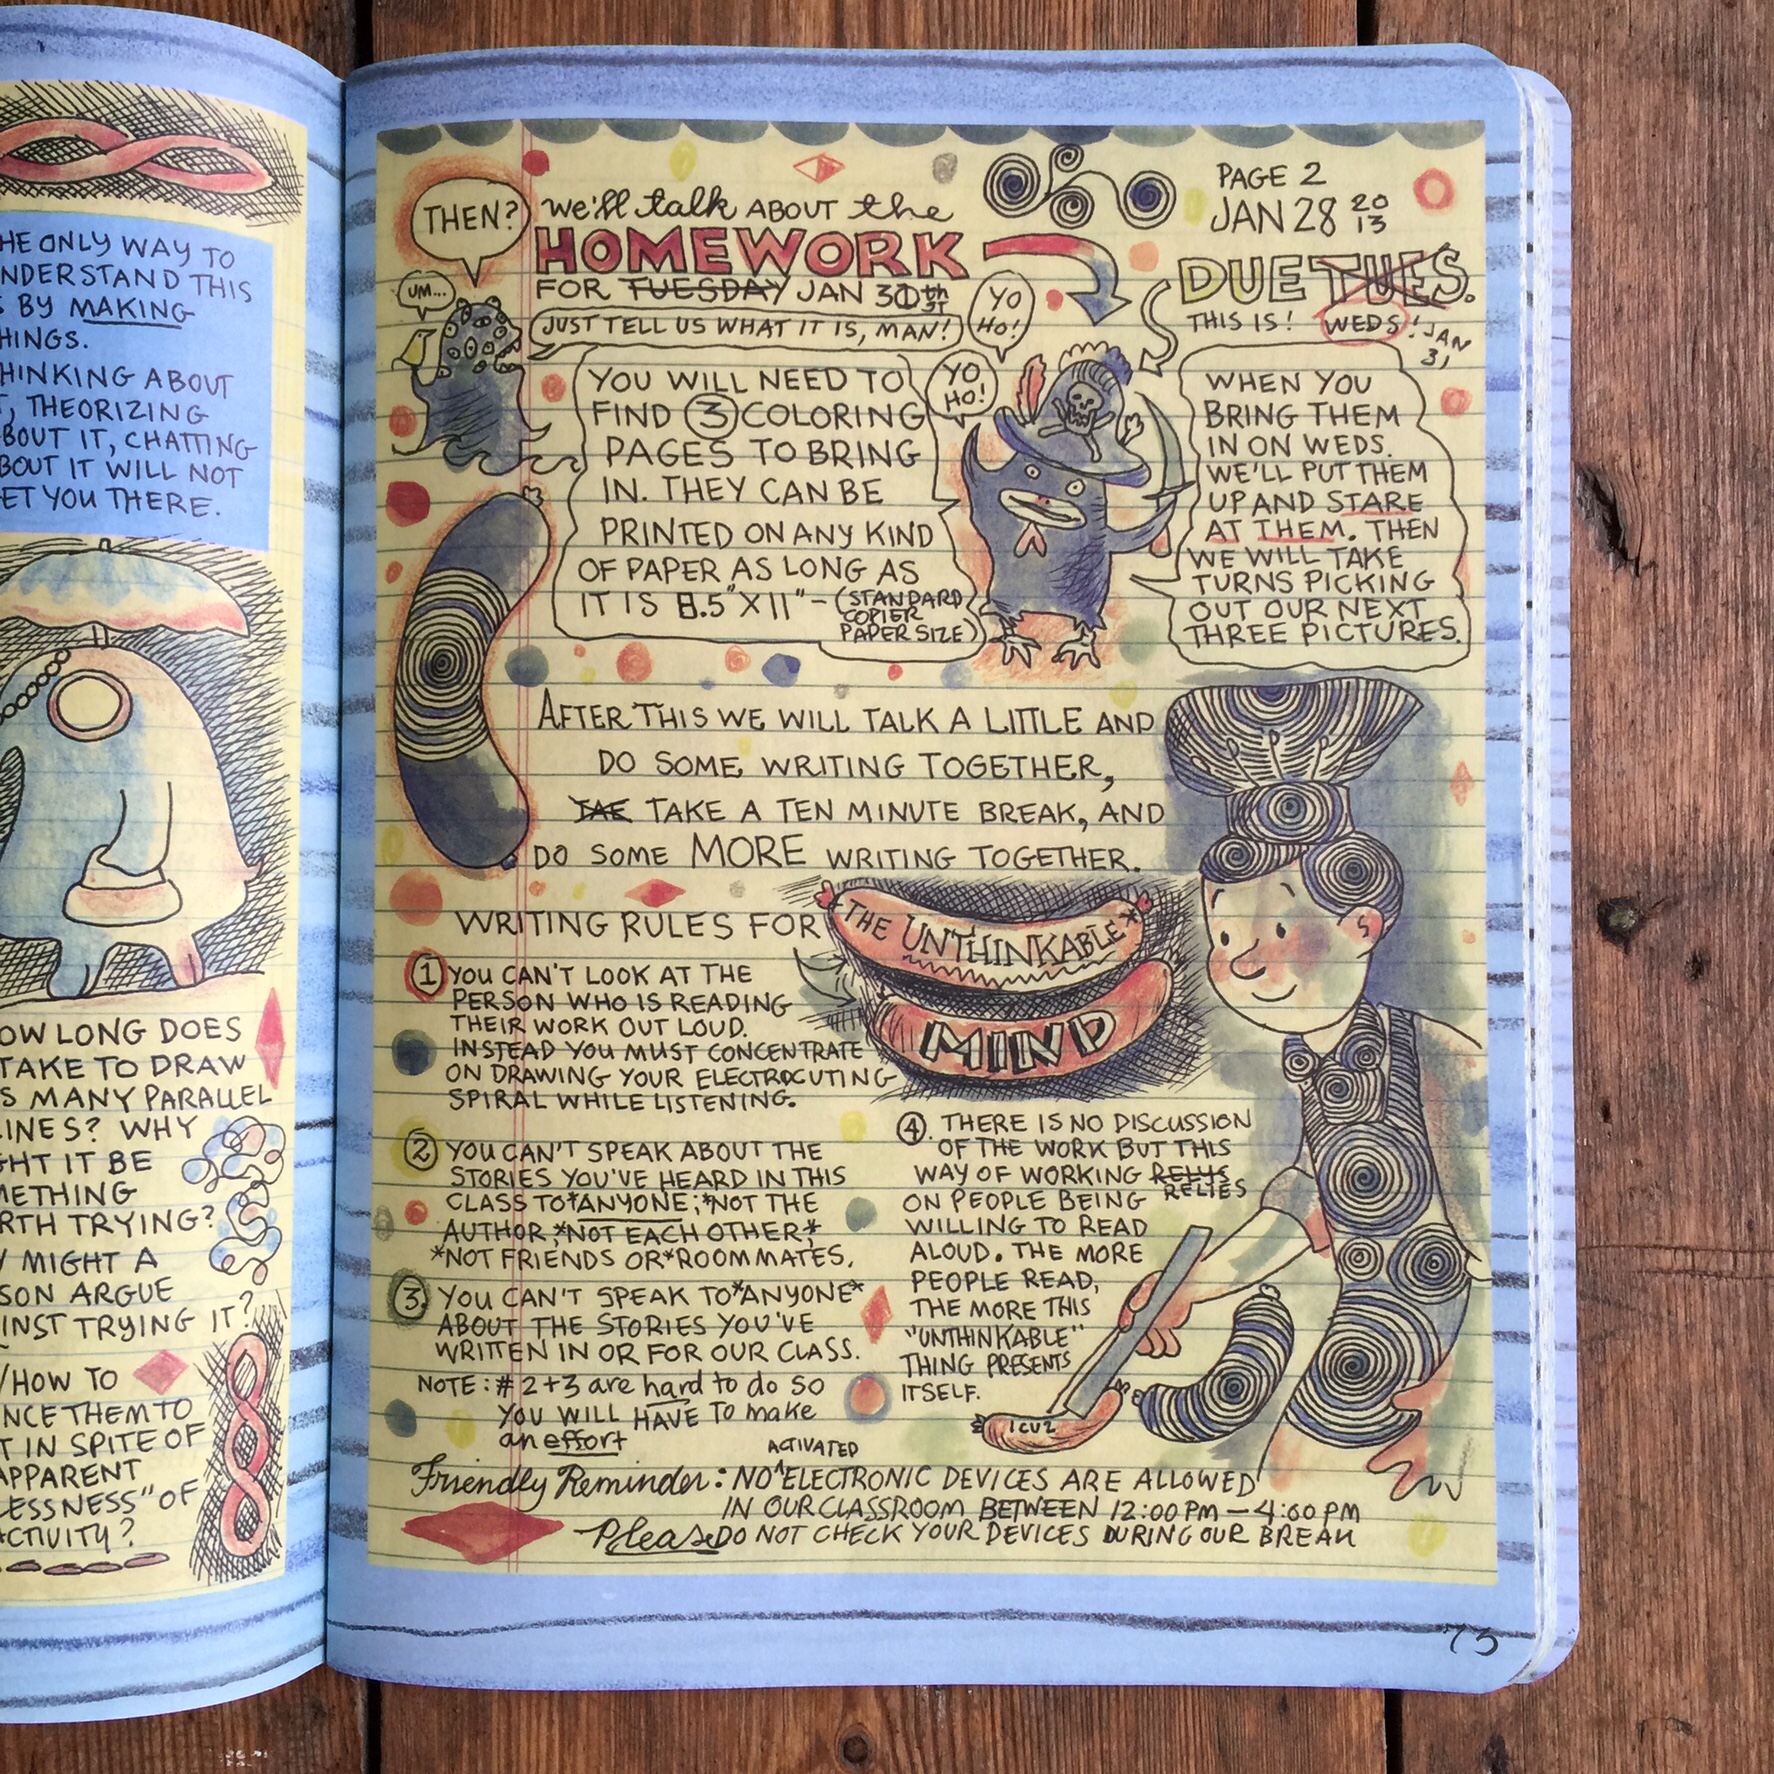 HE ONLY WAY TO
NDERSTAND THIS
S BY MAKING
HINGS.
HINKING ABOUT
T, THEORIZING
BOUT IT, CHATTING
BOUT IT WILL NOT
ET YOU THERE.
OW LONG DOES
TAKE TO DRAW
S MANY PARALLEL
LINES? WHY
GHT IT BE
METHING
RTH TRYING?
Y MIGHT A
SON ARGUE
INST TRYING IT?
/HOW TO
NCE THEM TO
T IN SPITE OF
APPARENT
LESSNESS" OF
ACTIVITY?
PAGE 2
JAN 28 2013
THEN?
we'll talk ABOUT the
HOMEWORK
FOR TUESDAY JAN 30th 31
UM...
JUST TELL US WHAT IT IS, MAN!
YO HO!
YO HO!
DUE TUES.
THIS IS! WEDS! JAN 31
YOU WILL NEED TO
FIND 3 COLORING
PAGES TO BRING
IN. THEY CAN BE
PRINTED ON ANY KIND
OF PAPER AS LONG AS
IT IS 8.5" X 11" - (STANDARD
COPIER
PAPER SIZE)
WHEN YOU
BRING THEM
IN ON WEDS.
WE'LL PUT THEM
UP AND STARE
AT THEM. THEN
WE WILL TAKE
TURNS PICKING
OUT OUR NEXT
THREE PICTURES.
AFTER THIS WE WILL TALK A LITTLE AND
DO SOME WRITING TOGETHER,
TAE TAKE A TEN MINUTE BREAK, AND
DO SOME MORE WRITING TOGETHER.
WRITING RULES FOR
THE UNTHINKABLE
MIND
1 YOU CAN'T LOOK AT THE
PERSON WHO IS READING
THEIR WORK OUT LOUD.
INSTEAD YOU MUST CONCENTRATE
ON DRAWING YOUR ELECTROCUTING
SPIRAL WHILE LISTENING.
2 YOU CAN'T SPEAK ABOUT THE
STORIES YOU'VE HEARD IN THIS
CLASS TO *ANYONE; *NOT THE
AUTHOR, *NOT EACH OTHER, *
*NOT FRIENDS OR *ROOMMATES.
3. YOU CAN'T SPEAK TO *ANYONE*
ABOUT THE STORIES YOU'VE
WRITTEN IN OR FOR OUR CLASS.
NOTE: # 2+3 are hard to do so
YOU WILL HAVE TO make
an effort
4. THERE IS NO DISCUSSION
OF THE WORK BUT THIS
WAY OF WORKING RELYS
RELIES
ON PEOPLE BEING
WILLING TO READ
ALOUD. THE MORE
PEOPLE READ,
THE MORE THIS
"UNTHINKABLE"
THING PRESENTS
ITSELF.
ICU2
Friendly Reminder: NO ACTIVATED ELECTRONIC DEVICES ARE ALLOWED
IN OUR CLASSROOM BETWEEN 12:00 PM — 4:00 PM
Please DO NOT CHECK YOUR DEVICES DURING OUR BREAK
73